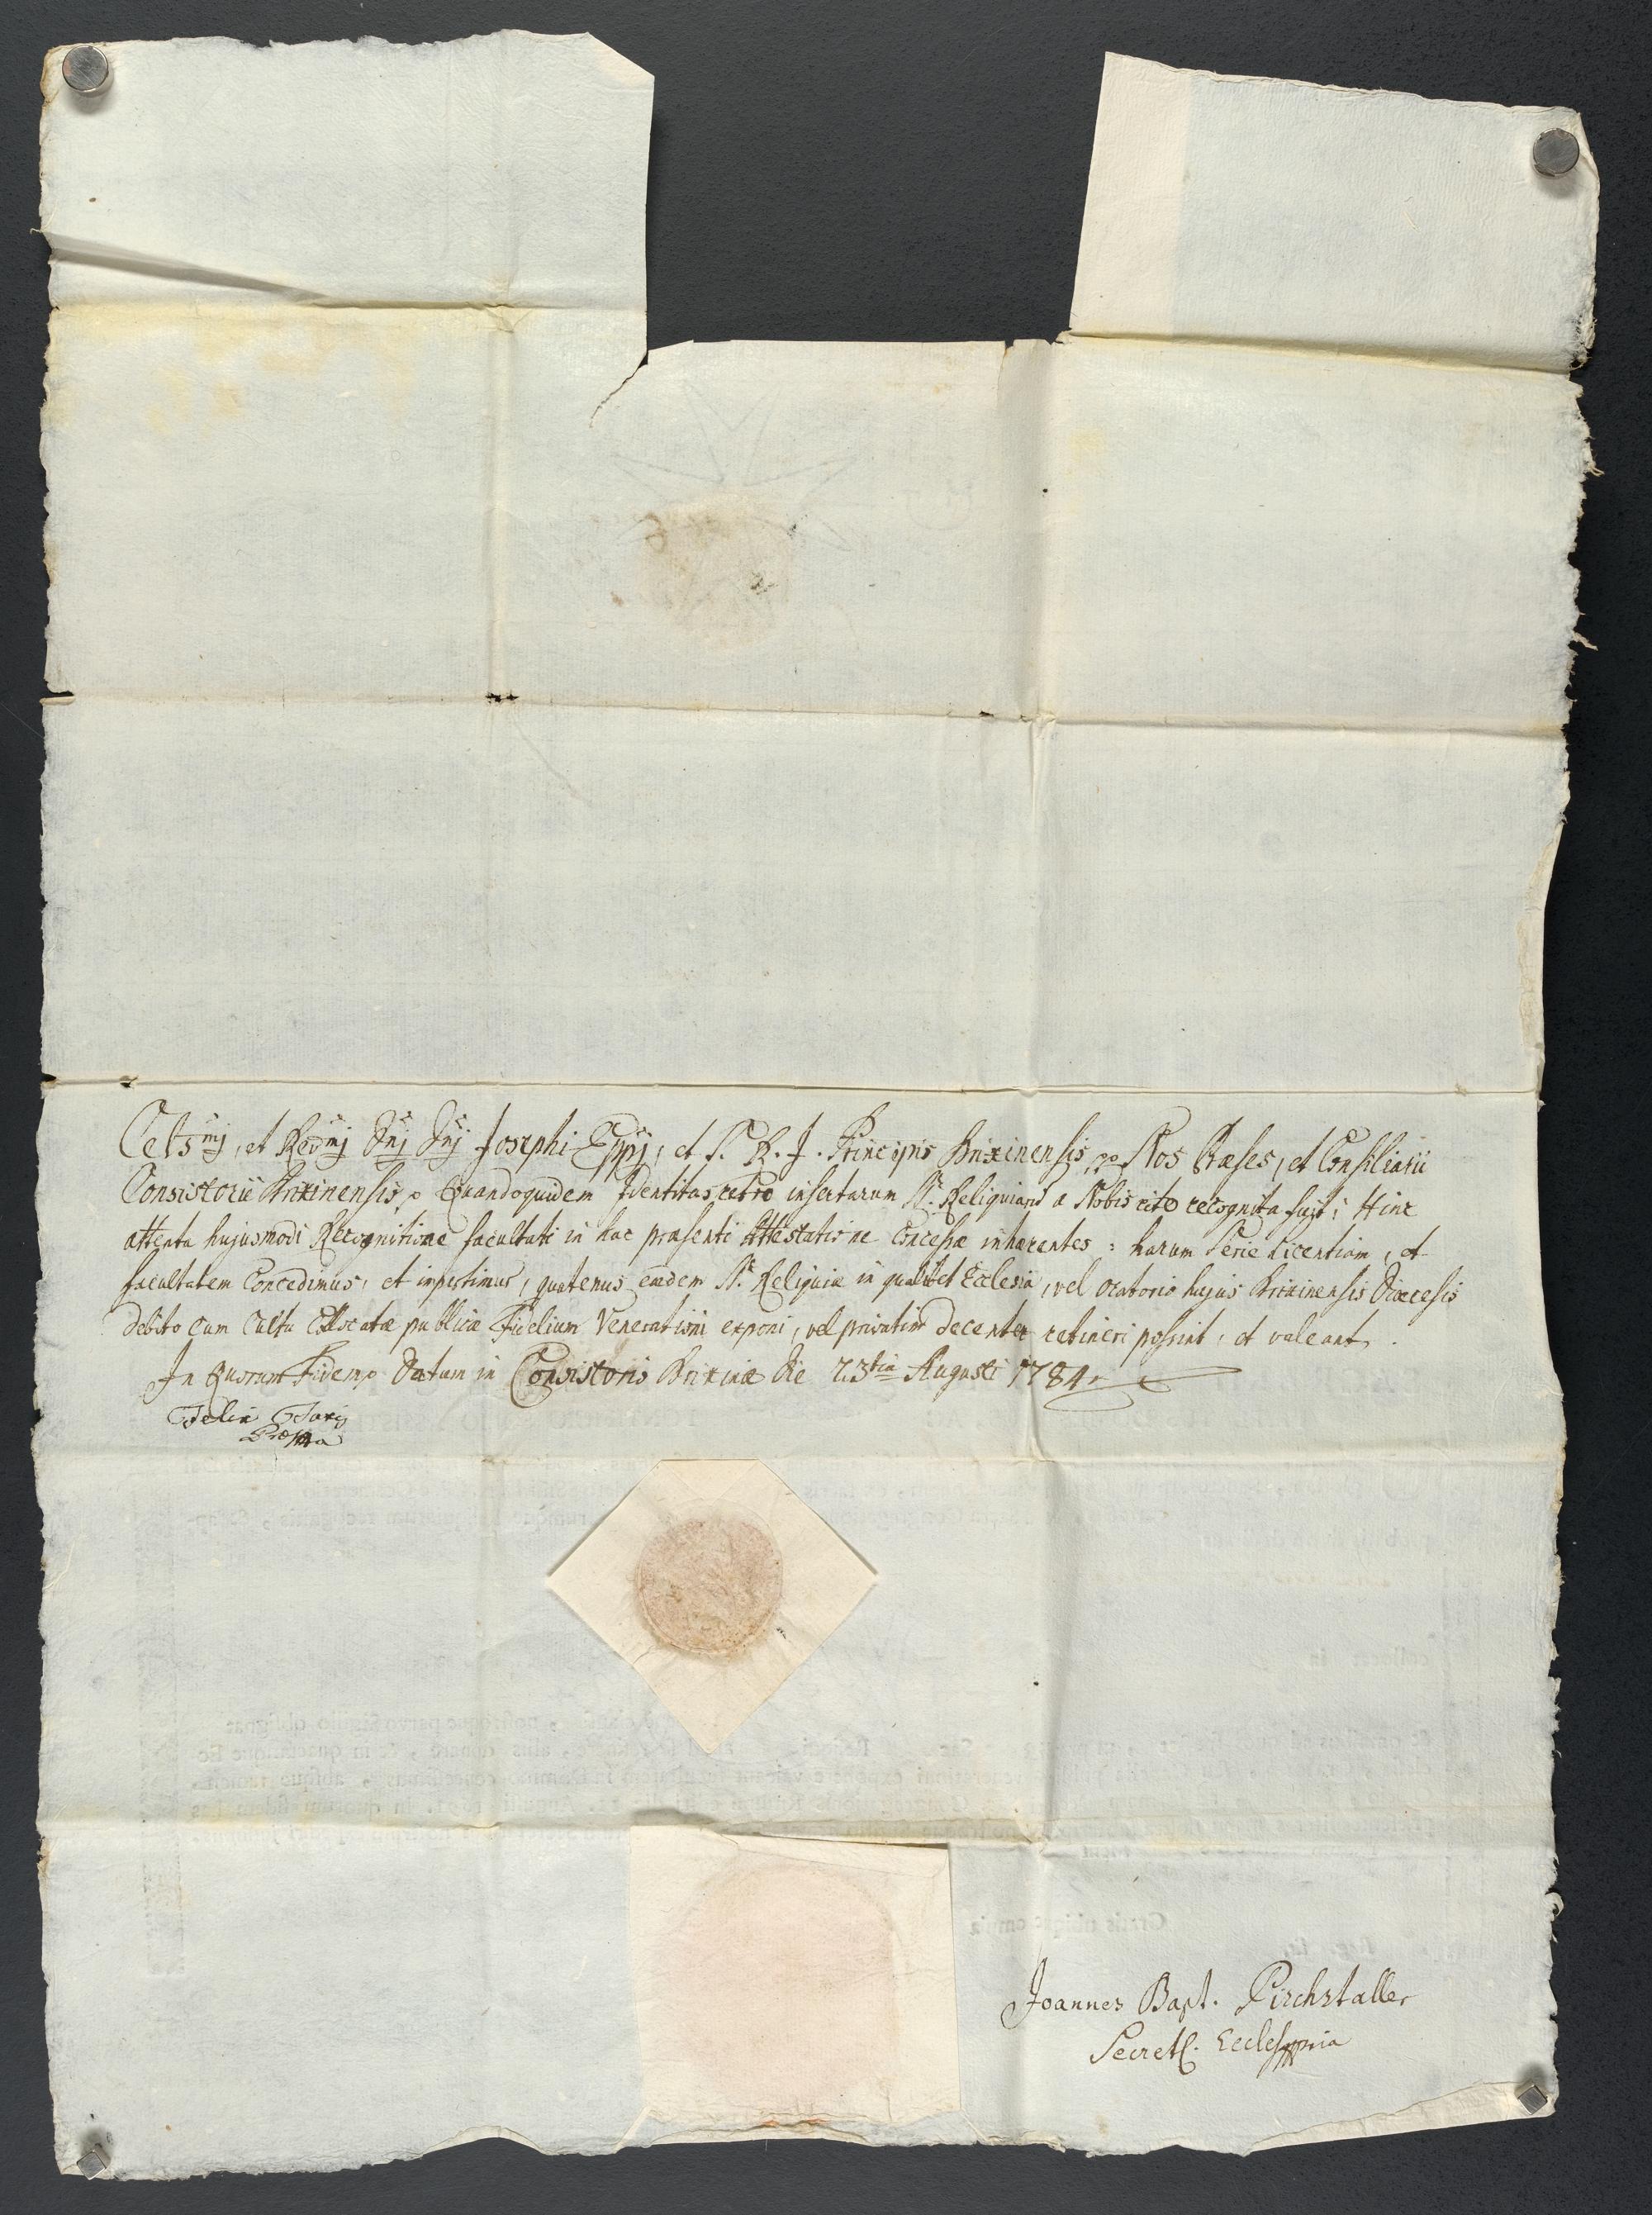 Cels̅mj, et Red̅mj Dn̅j Dn̅j Josephi Eppj, et S. R. J. Principis Brixinensis, Nos Præses, et Consiliarii
Consistorii Brixinensis, Quandoquidem Identitas retro insertarum Sr. Reliquiarum a Nobis rite recognita fuit; Hinc
attenta hujusmodi Recognitione facultati in hac præsenti Attestatione concessæ inhærentes: harum Serie Licentiam, et
facultatem Concedimus, et impertimur, quatenus eædem Sæ Reliquiæ in qualibet Ecclesia, vel Oratorio hujus Brixinensis Diœcesis
debito cum Cultu Collocatæ publicæ Fidelium Venerationi exponi, vel privatim decenter retineri possint, et valeant.
In Quorum Fidem Datum in Consistorio Brixinæ Die 23tia Augusti 1784
Felix
Joannes Bapt. Pirchstaller
Secret. Eccles mpria